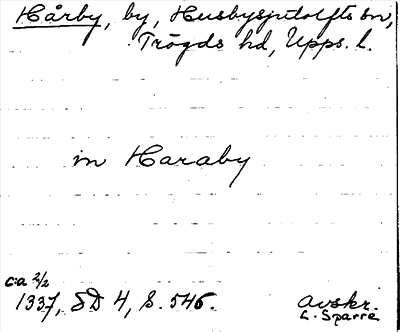 Hårby, by, Husbysjutolfts sn,
Trögds hd, Upps. l.
in Haraby
ca 2/2
1337, SD 4, S. 546.
avskr.
L. Sparre